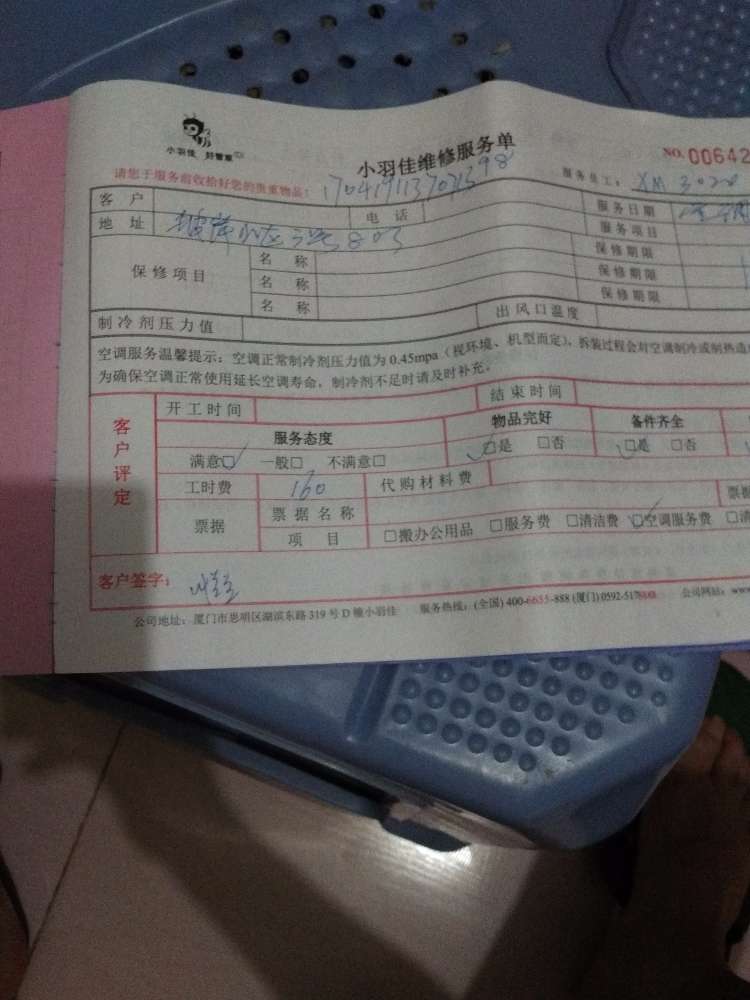 小羽佳 好管家
小羽佳维修服务单
NO. 00642
请您于服务前收拾好您的贵重物品:
服务员工: XM 3020
客户 电话 服务日期
地址 小区 803 服务项目
保修项目 名称 保修期限
名称 保修期限
名称 保修期限
制冷剂压力值 出风口温度
空调服务温馨提示: 空调正常制冷剂压力值为 0.45mpa (视环境、机型而定), 拆装过程会对空调制冷或制热造
为确保空调正常使用延长空调寿命, 制冷剂不足时请及时补充。
客户评定
开工时间 结束时间
服务态度 物品完好 备件齐全
满意□ 一般□ 不满意□ □是 □否 □是 □否
工时费 160 代购材料费
票据 票据名称 票据
项目 □搬办公用品 □服务费 □清洁费 □空调服务费
客户签字:
公司地址: 厦门市思明区湖滨东路 319 号 D 幢小羽佳 服务热线: (全国) 400-6655-888 (厦门) 0592-517 公司网站: www